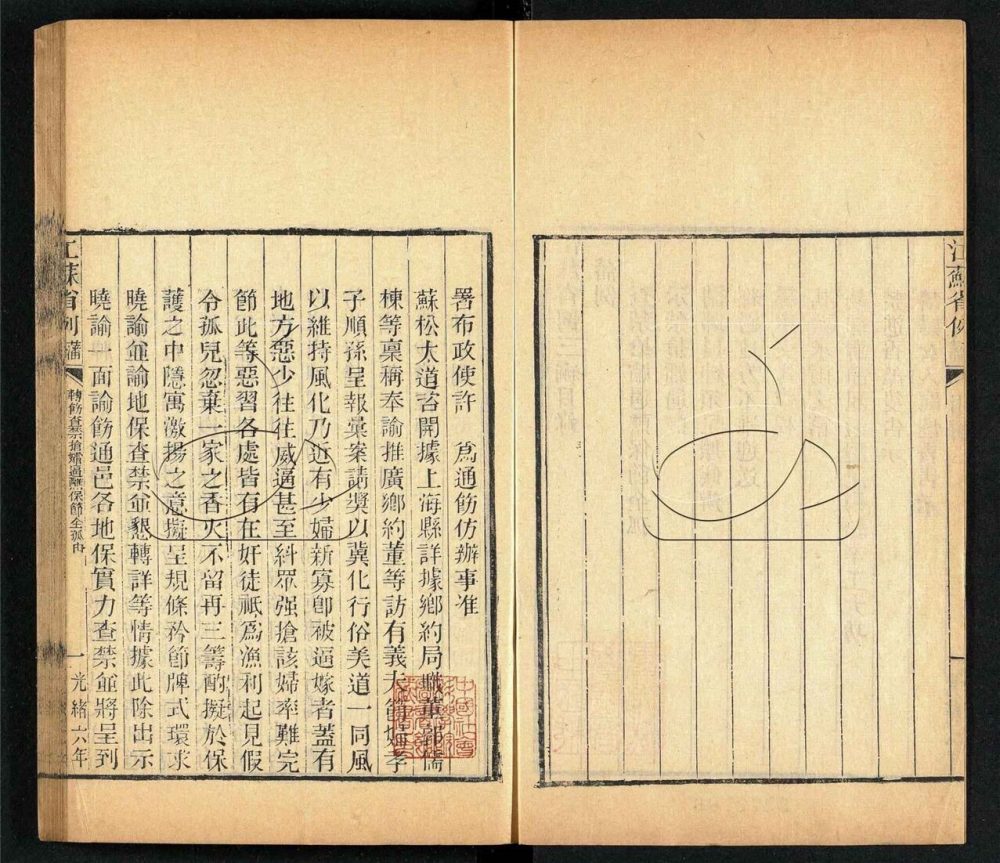 江蘇省例
署布政使許　爲通飭仿辦事准
蘇松太道咨開據上海縣詳據鄉約局職董郭儒
棟等稟稱奉諭推廣鄉約董等訪有義夫節婦孝
子順孫呈報彙案請獎以冀化行俗美道一同風
以維持風化乃近有少婦新寡卽被逼嫁者蓋有
地方惡少往往威逼甚至糾眾强搶該婦率難完
節此等惡習各處皆有在奸徒祇爲漁利起見假
令孤兒忽棄一家之香火不留再三籌酌擬於保
護之中隱寓激揚之意擬呈規條矜節牌式環求
曉諭並諭地保查禁並懇轉詳等情據此除出示
曉諭一面諭飭通邑各地保實力查禁並將呈到
江蘇省例藩
轉飭查禁搶孀逼醮保節全孤由
一
光緒六年
中國社會